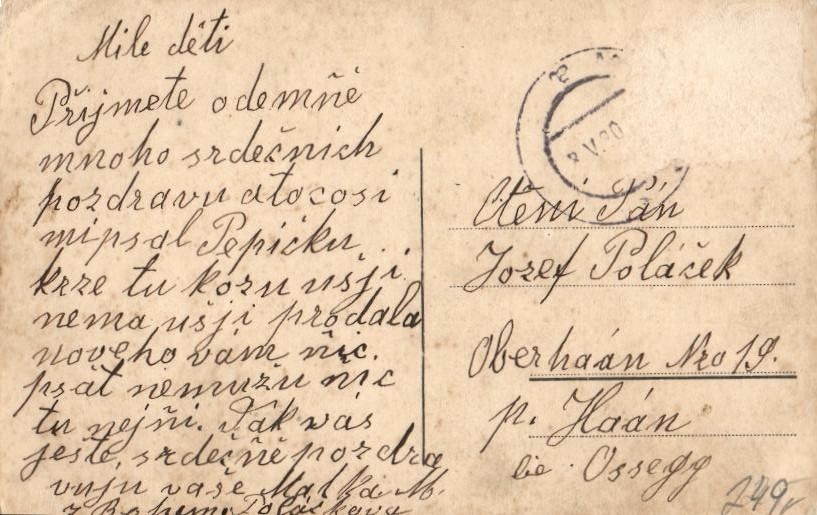 Mile děti
Přijmete odemňě
mnoho srdečnich
pozdravu atocosi
mipsal Pepičku
krze tu kozu usji
nema ušji prodala
noveho vám ňic.
psát nemužu ňic
tu nejňi. Ták vás
ješte, srdečňě pozdra
vuju vaše Matka M.
z Poláčkova
8.V.20
Ctěni Pán
Jozef Poláček
Oberhaán Nro 19.
p. Haán
bie Ossegg
249